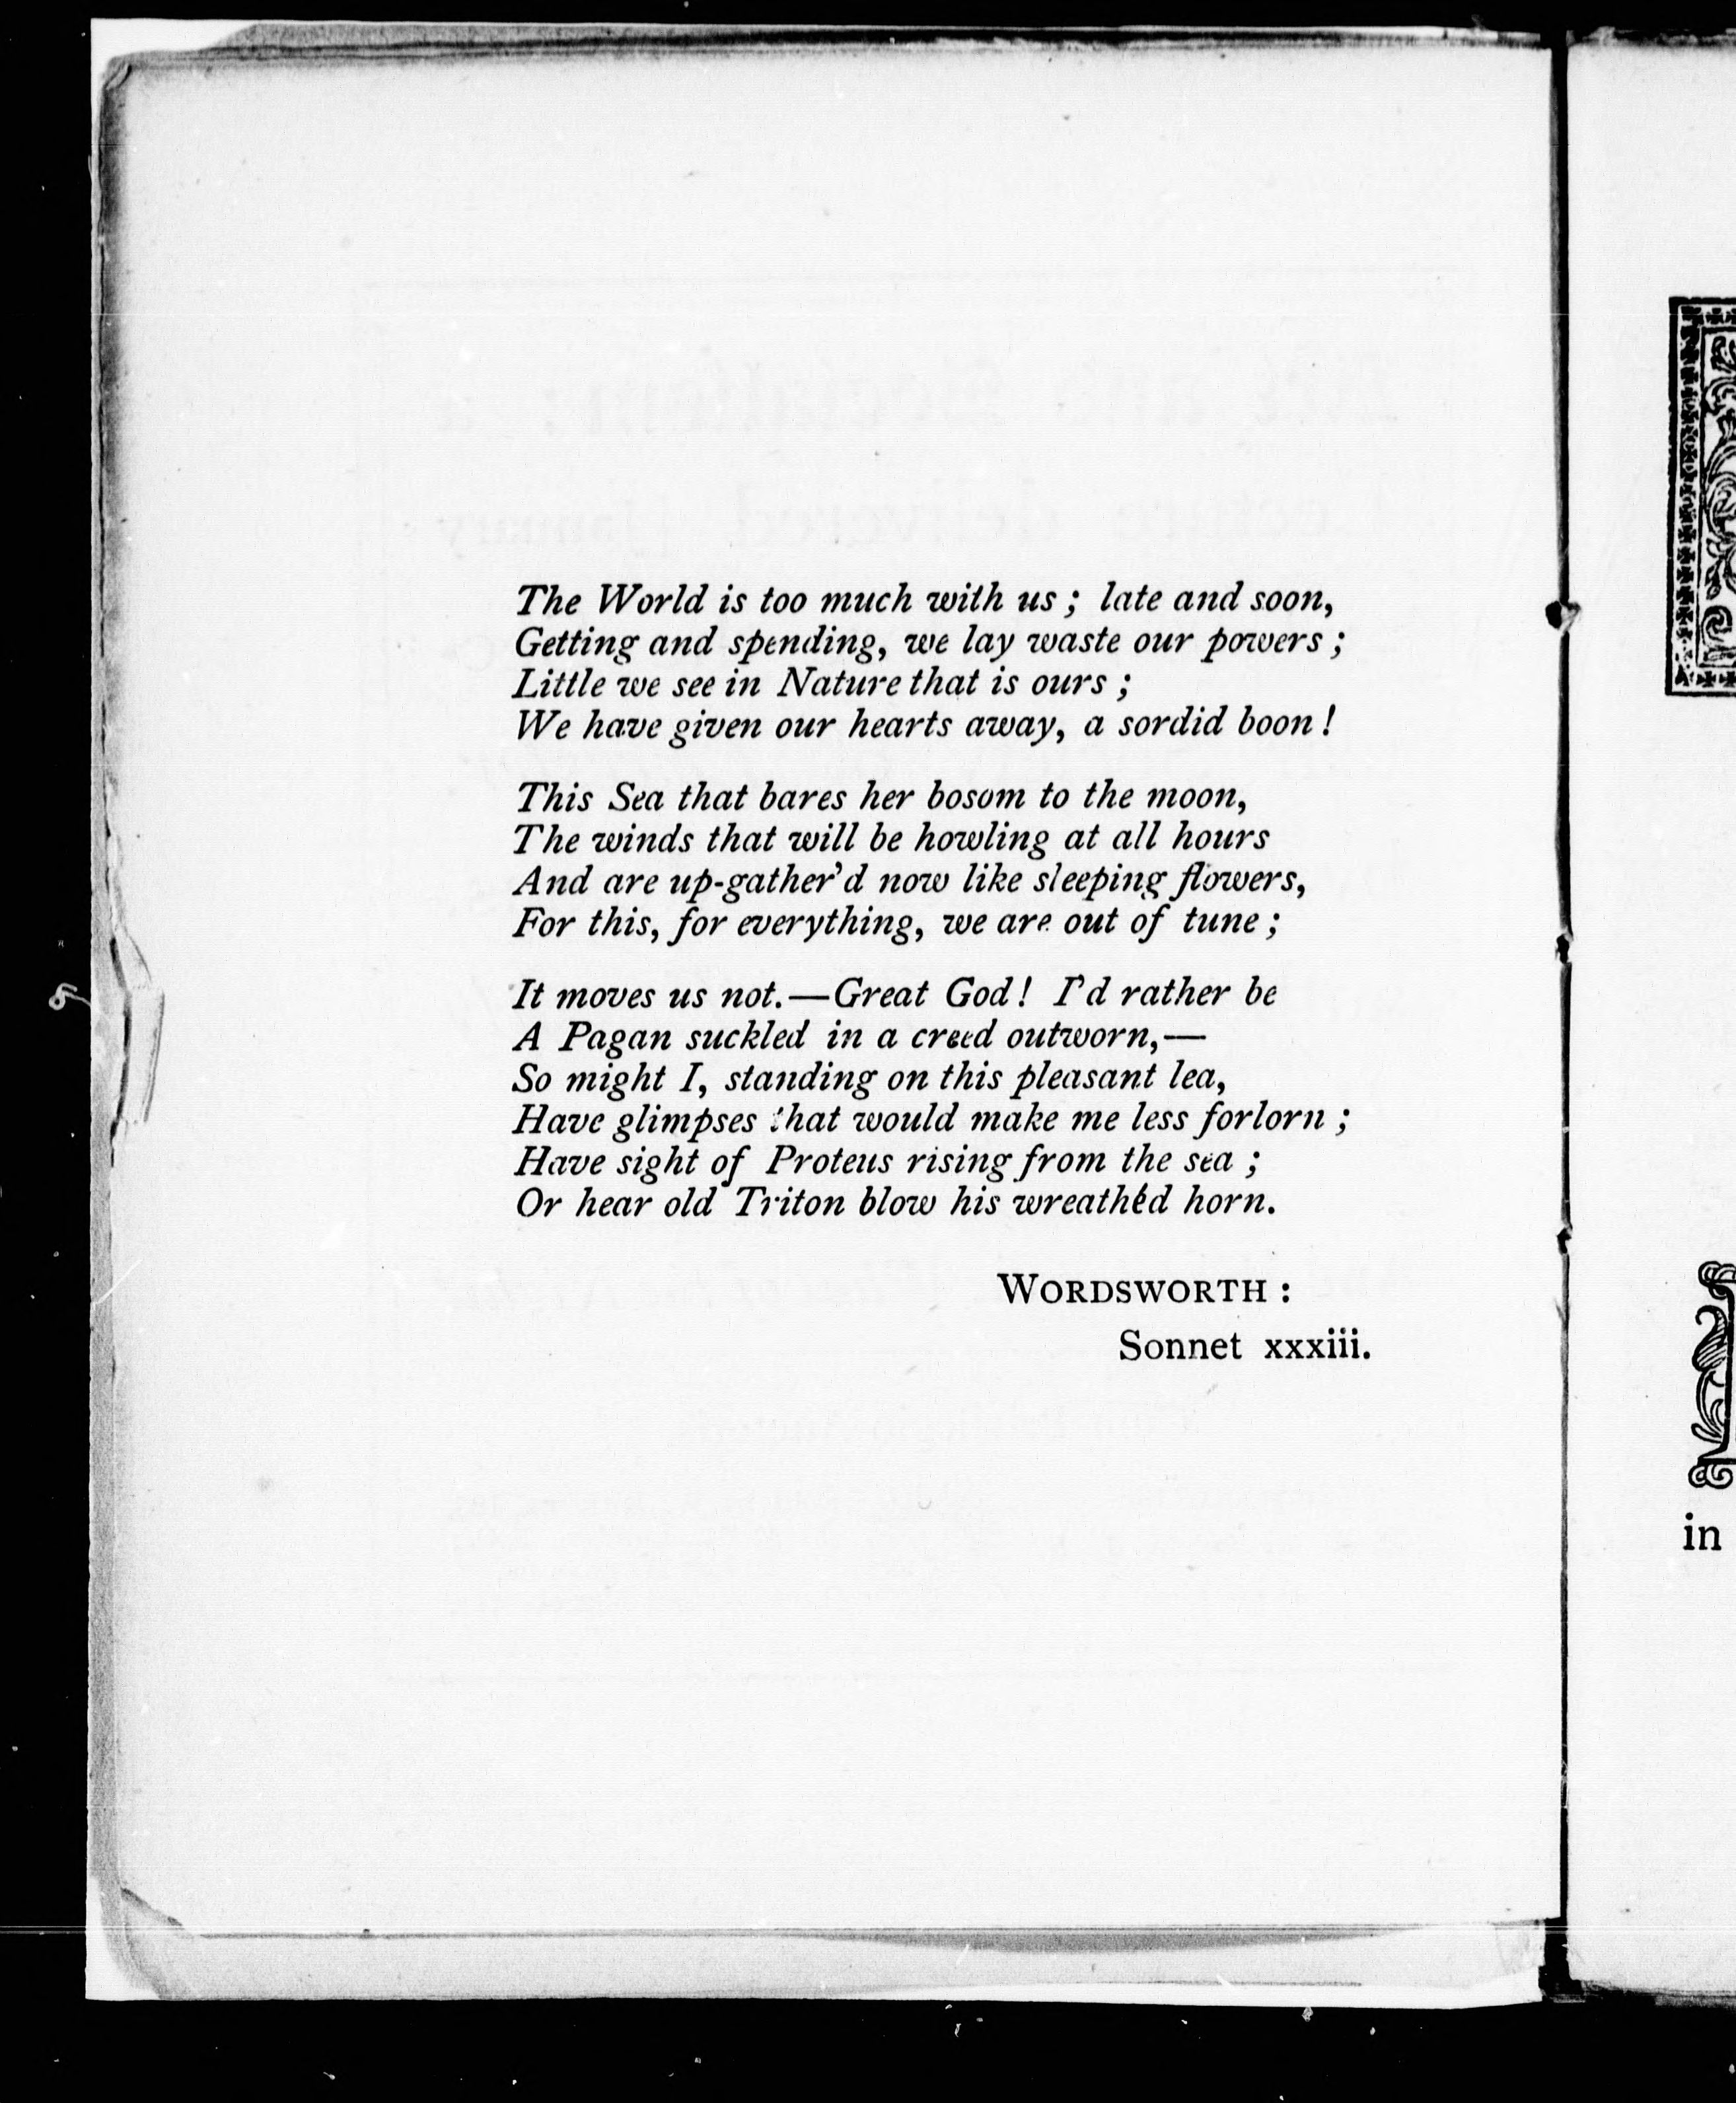 The World is too much with us ; late and soon,
Getting and spending, we lay waste our powers ;
Little we see in Nature that is ours ;
We have given our hearts away, a sordid boon !
This Sea that bares her bosom to the moon,
The winds that will be howling at all hours
And are up-gather'd now like sleeping flowers,
For this, for everything, we are out of tune ;
It moves us not.—Great God ! I'd rather be
A Pagan suckled in a creed outworn,—
So might I, standing on this pleasant lea,
Have glimpses that would make me less forlorn ;
Have sight of Proteus rising from the sea ;
Or hear old Triton blow his wreathéd horn.
WORDSWORTH :
Sonnet xxxiii.
in